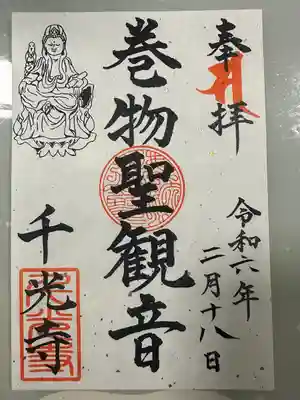 奉拝
令和六年
二月十八日
巻物聖観音
千光寺